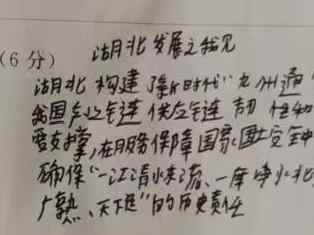 (6分)
湖北发展之我见
湖北构建隆时代"九州通
我国产业链供应链韧性和
要支撑,在服务保障国家国土安全中
确保"一江清水东流、一库净水北
广熟、天下足"的历史责任